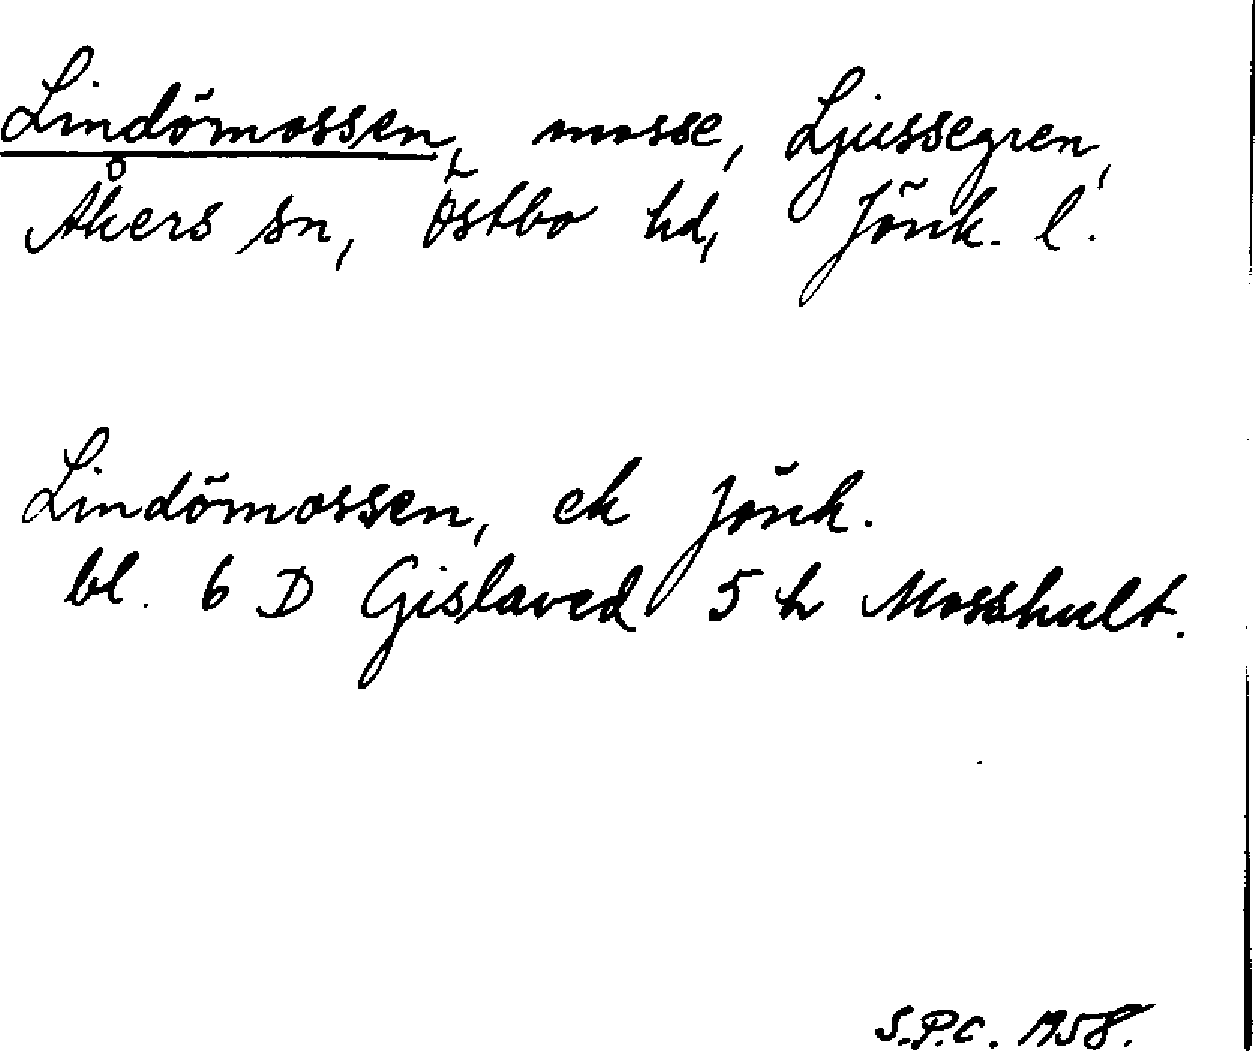 Lindömossen, mosse, Ljussegren,
Åkers sn, Östbo hd, Jönk. l.
Lindömossen, ek Jönk.
bl. 6 D Gislaved 5 h Mosshult.
S.P.C. 1958.